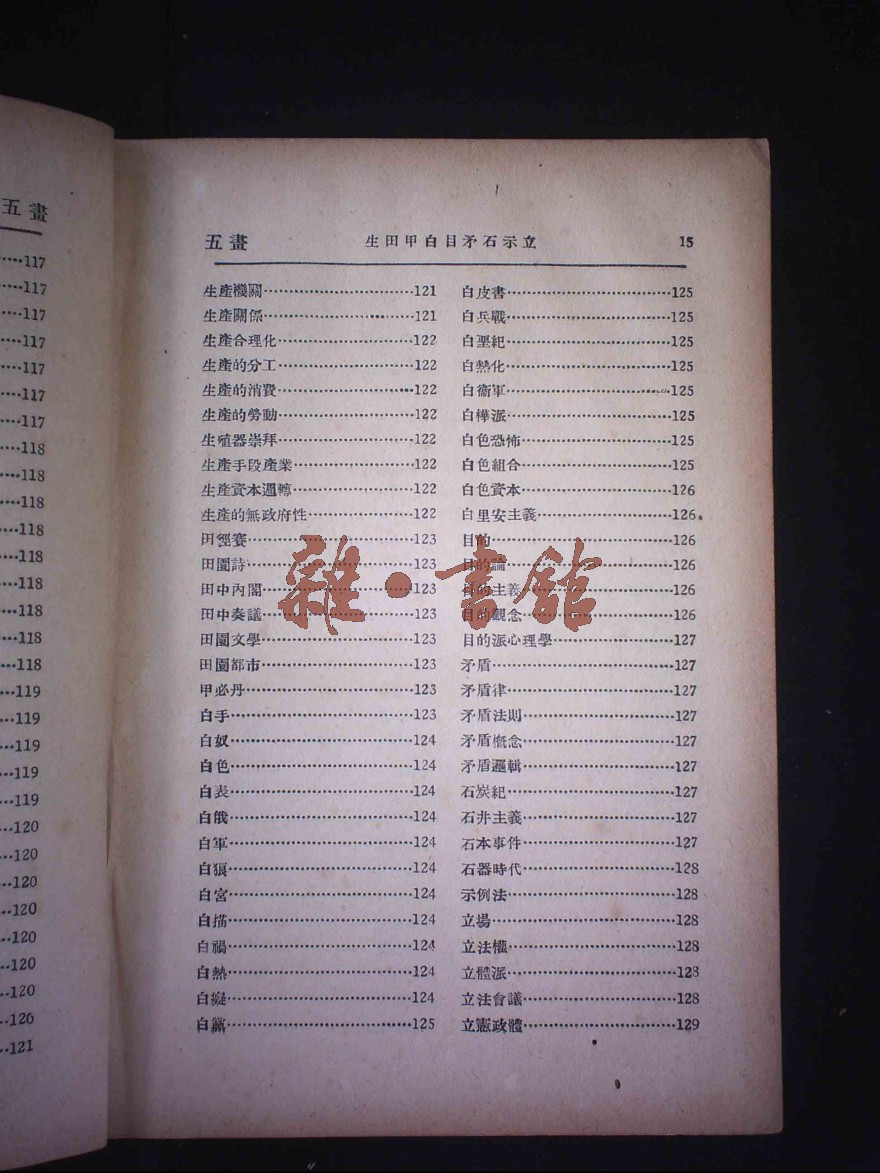 五畫
····117
····117
····117
····117
····117
····117
····117
····118
····118
····118
····118
····118
····118
····118
····118
····118
····119
····119
····119
····119
····119
···120
···120
···120
···120
···120
···120
···120
···120
···121
五畫 生田甲白目矛石示立 15
生產機關····121
生產關係····121
生產合理化····122
生產的分工····122
生產的消費····122
生產的勞動····122
生殖器崇拜····122
生產手段產業····122
生產資本週轉····122
生產的無政府性····122
田徑賽····123
田園詩····123
田中內閣····123
田中奏議····123
田園文學····123
田園都市····123
甲必丹····123
白手····123
白奴····124
白色····124
白表····124
白俄····124
白軍····124
白狼····124
白宮····124
白描····124
白禍····124
白熱····124
白癡····124
白黨····125
白皮書····125
白兵戰····125
白堊紀····125
白熱化····125
白衞軍····125
白樺派····125
白色恐怖····125
白色組合····125
白色資本····126
白里安主義····126
目的····126
目的論····126
目的主義····126
目的觀念····126
目的派心理學····127
矛盾····127
矛盾律····127
矛盾法則····127
矛盾概念····127
矛盾邏輯····127
石炭紀····127
石井主義····127
石本事件····127
石器時代····128
示例法····128
立場····128
立法權····128
立體派····128
立法會議····128
立憲政體····129
雜·書館